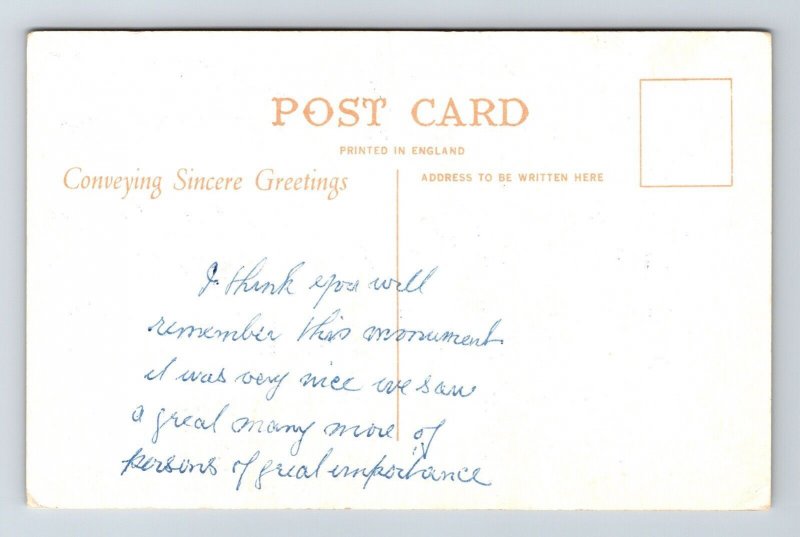 POST CARD
PRINTED IN ENGLAND
Conveying Sincere Greetings
ADDRESS TO BE WRITTEN HERE
I think you will
remember this monument
it was very nice we saw
a great many more of
persons of great importance